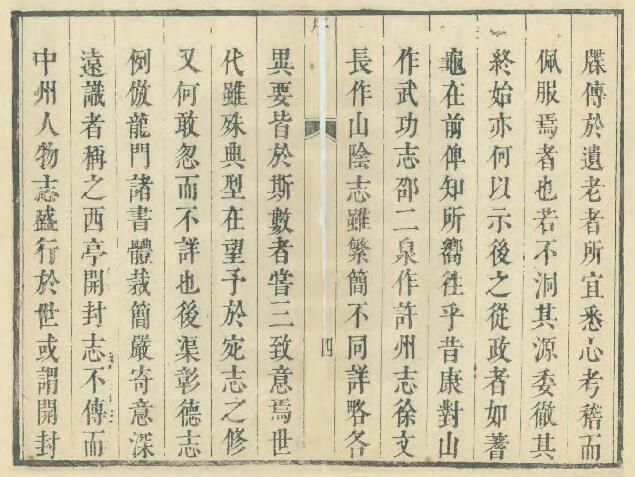 牒傳於遺老者所宜悉心考稽而
佩服焉者也若不洞其源委徹其
終始亦何以示後之從政者如蓍
龜在前俾知所嚮往乎昔康對山
作武功志邵二泉作許州志徐文
長作山陰志雖繁簡不同詳略各
四
異要皆於斯數者嘗三致意焉世
代雖殊典型在望予於宛志之修
又何敢忽而不詳也後渠彰德志
例倣龍門諸書體裁簡嚴寄意深
遠識者稱之西亭開封志不傳而
中州人物志盛行於世或謂開封